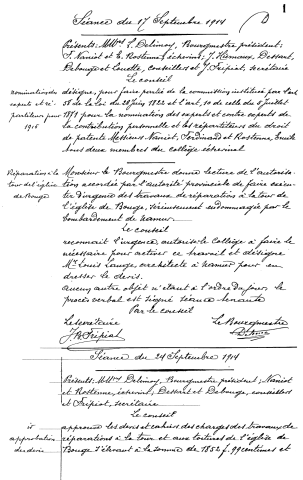 1
Séance du 17 Septembre 1914
Présents: MMrs Delimoy, Bourgmestre président;
F. Naniot et E. Rostenne, échevins; J. Hémaux, Dessart,
Debouge et Louette, conseillers et J. Fripiat, secrétaire
Le conseil
nomination des
experts et ré-
partiteurs pour
1915
désigne, pour faire partie de la commission instituée par l'art
58 de la loi du 28 juin 1822 et l'art. 10 de celle du 5 juillet
1871 pour la nomination des experts et contre experts de
la contribution personnelle et les répartiteurs du droit
de patente Messieurs Naniot, Ferdinand et Rostenne, Emile
tous deux membres du collège échevinal.
Réparations à la
tour de l'église
de Bouge
Monsieur le Bourgmestre donne lecture de l'autorisa-
tion accordée par l'autorité provinciale de faire exécu-
ter d'urgence des travaux de réparations à la tour de
l'église de Bouge, sérieusement endommagée par le
bombardement de Namur.
Le conseil
reconnait l'urgence, autorise le Collège à faire le
nécessaire pour activer ce travail et désigne
Mr Louis Lange, architecte à Namur pour en
dresser le devis.
aucun autre objet n'étant à l'ordre du jour le
procès verbal est signé séance tenante
Par le conseil
Le secrétaire
Le Bourgmestre
J. Fripiat
Séance du 24 Septembre 1914
Présents: MMrs Delimoy, Bourgmestre président; Naniot
et Rostenne, échevins; Dessart et Debouge, conseillers
et Fripiat, secrétaire
Le conseil
id
approbation
du devis
approuve les devis et cahier des charges des travaux de
réparations à la tour et aux toitures de l'église de
Bouge s'élevant à la somme de 1852 f. 99 centimes et